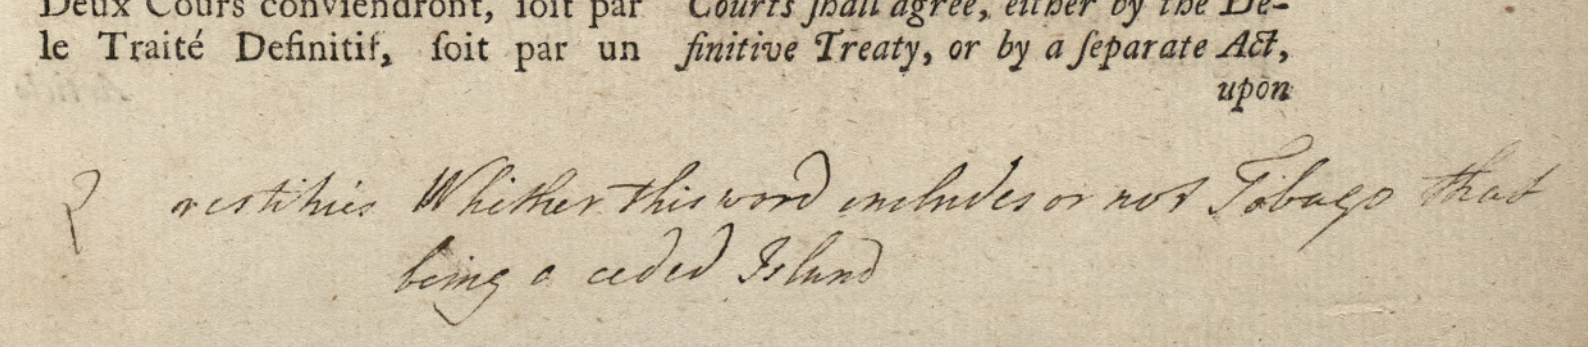 Deux Cours conviendront, ſoit par
le Traité Definitif, ſoit par un
Courts ſhall agree, either by the De-
finitive Treaty, or by a ſeparate Act,
upon
Whether this word includes or not Tobago that
being a ceded Island